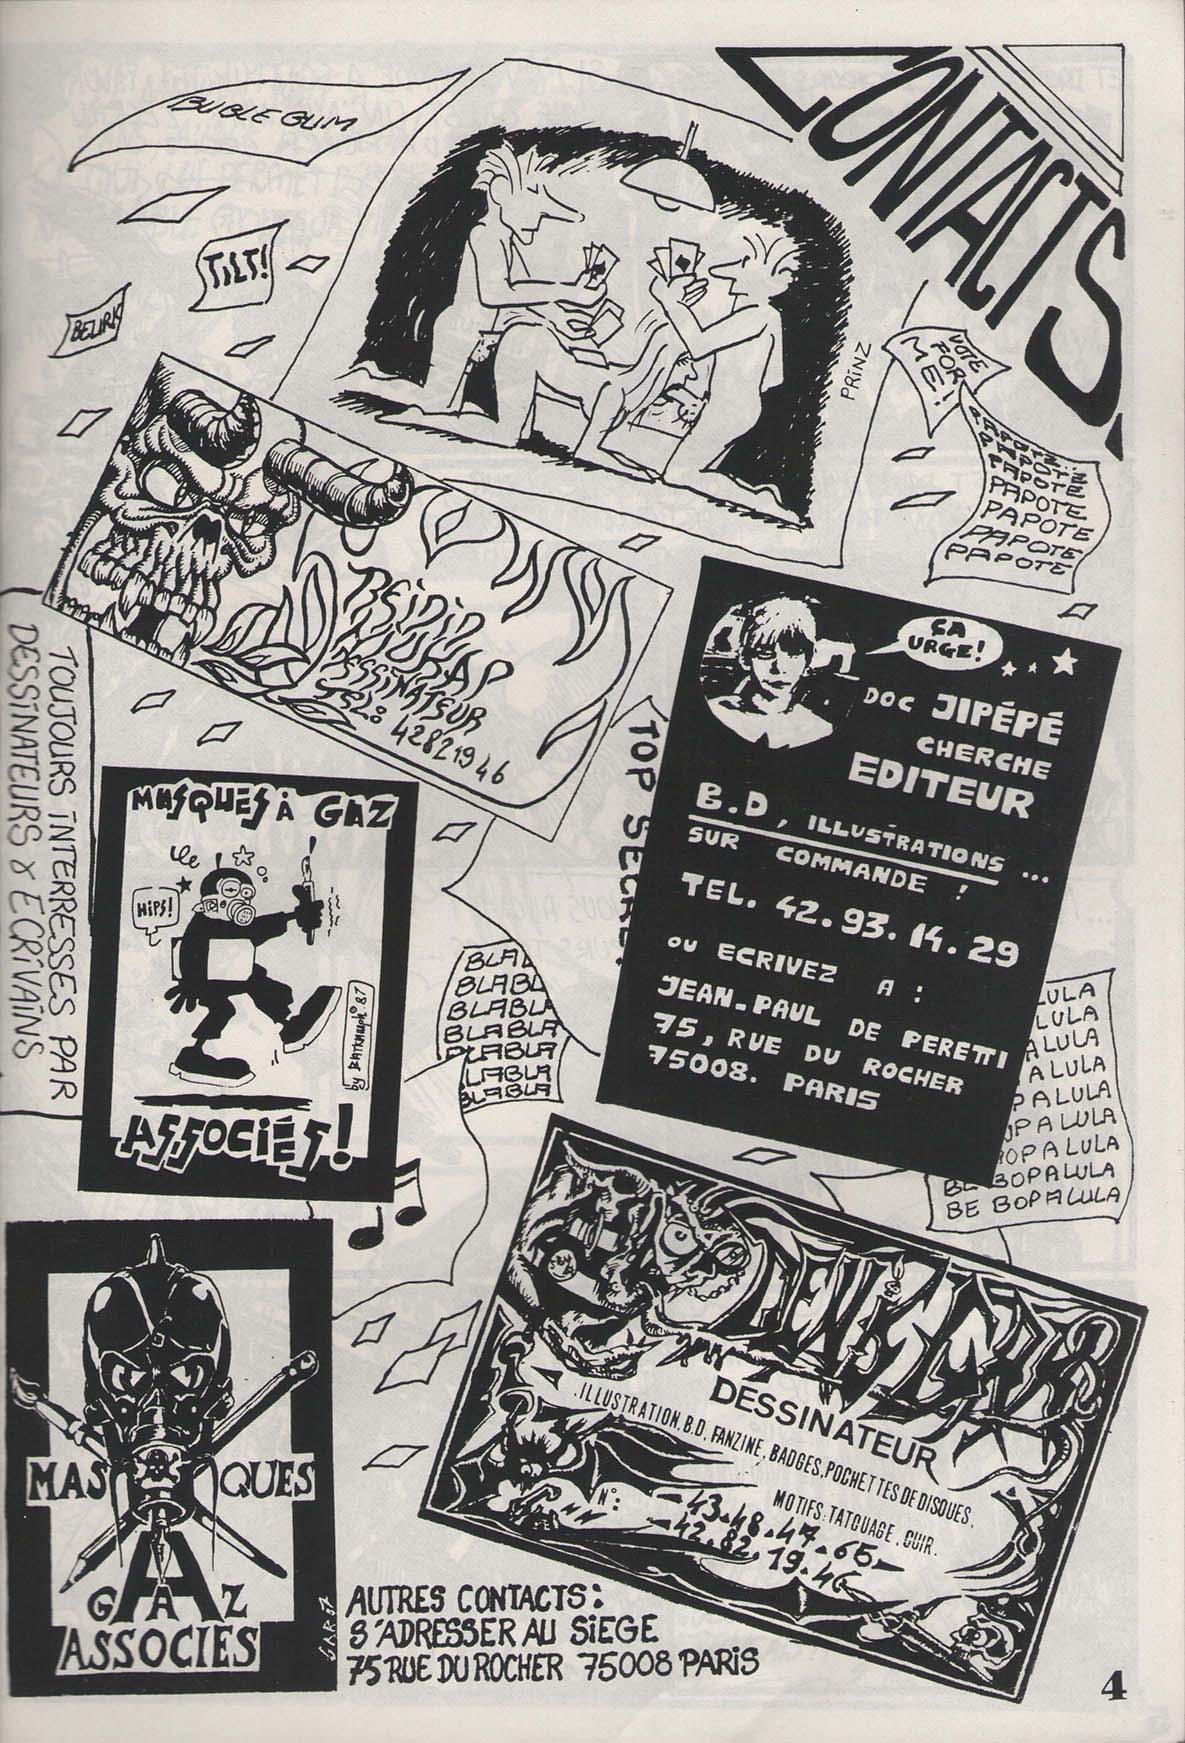 CONTACTS.
BUBLE GUM
TILT!
BEURK
PRINZ
VOTE
POR
ME!
PAPOTE
PAPOTE
PAPOTE
PAPOTE
PAPOTE
PAPOTE
PAPOTE
DESSINATEUR
TEL: 42821946
TOUJOURS INTERRESSES PAR
DESSINATEURS & ECRIVAINS
TOP SECRE
ÇA
URGE!
DOC JIPÉPÉ
CHERCHE
EDITEUR
B.D, ILLUSTRATIONS ...
SUR COMMANDE !
TEL. 42.93.14.29
OU ECRIVEZ A :
JEAN-PAUL DE PERETTI
75, RUE DU ROCHER
75008. PARIS
MASQUES À GAZ
HIPS!
by BATKAMPH © 87
ASSOCIÉS!
BLABL
BLABL
BLABLA
BLABLA
BLABLA
BLABLA
BLABLA
LULA
LULA
A LULA
P A LULA
P A LULA
OP A LULA
BOP A LULA
BE BOP A LULA
BE BOP A LULA
MASQUES
GAZ
ASSOCIES
DESSINATEUR
.ILLUSTRATION.B.D. FANZINE, BADGES, POCHETTES DE DISQUES,
MOTIFS: TATOUAGE. CUIR.
N°: -43.48.47.65-
-42.82.19.46
AUTRES CONTACTS:
S'ADRESSER AU SIEGE
75 RUE DU ROCHER 75008 PARIS
4